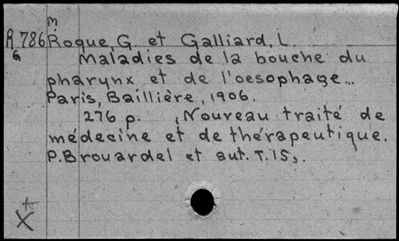 m
R 786 Roque, G. et Galliard, L.
6
Maladies de la bouche du
pharynx et de l'oesophage...
Paris, Baillière, 1906.
276 p. , Nouveau traité de
médecine et de thérapeutique.
P. Brouardel et aut. T.15,.
+
X